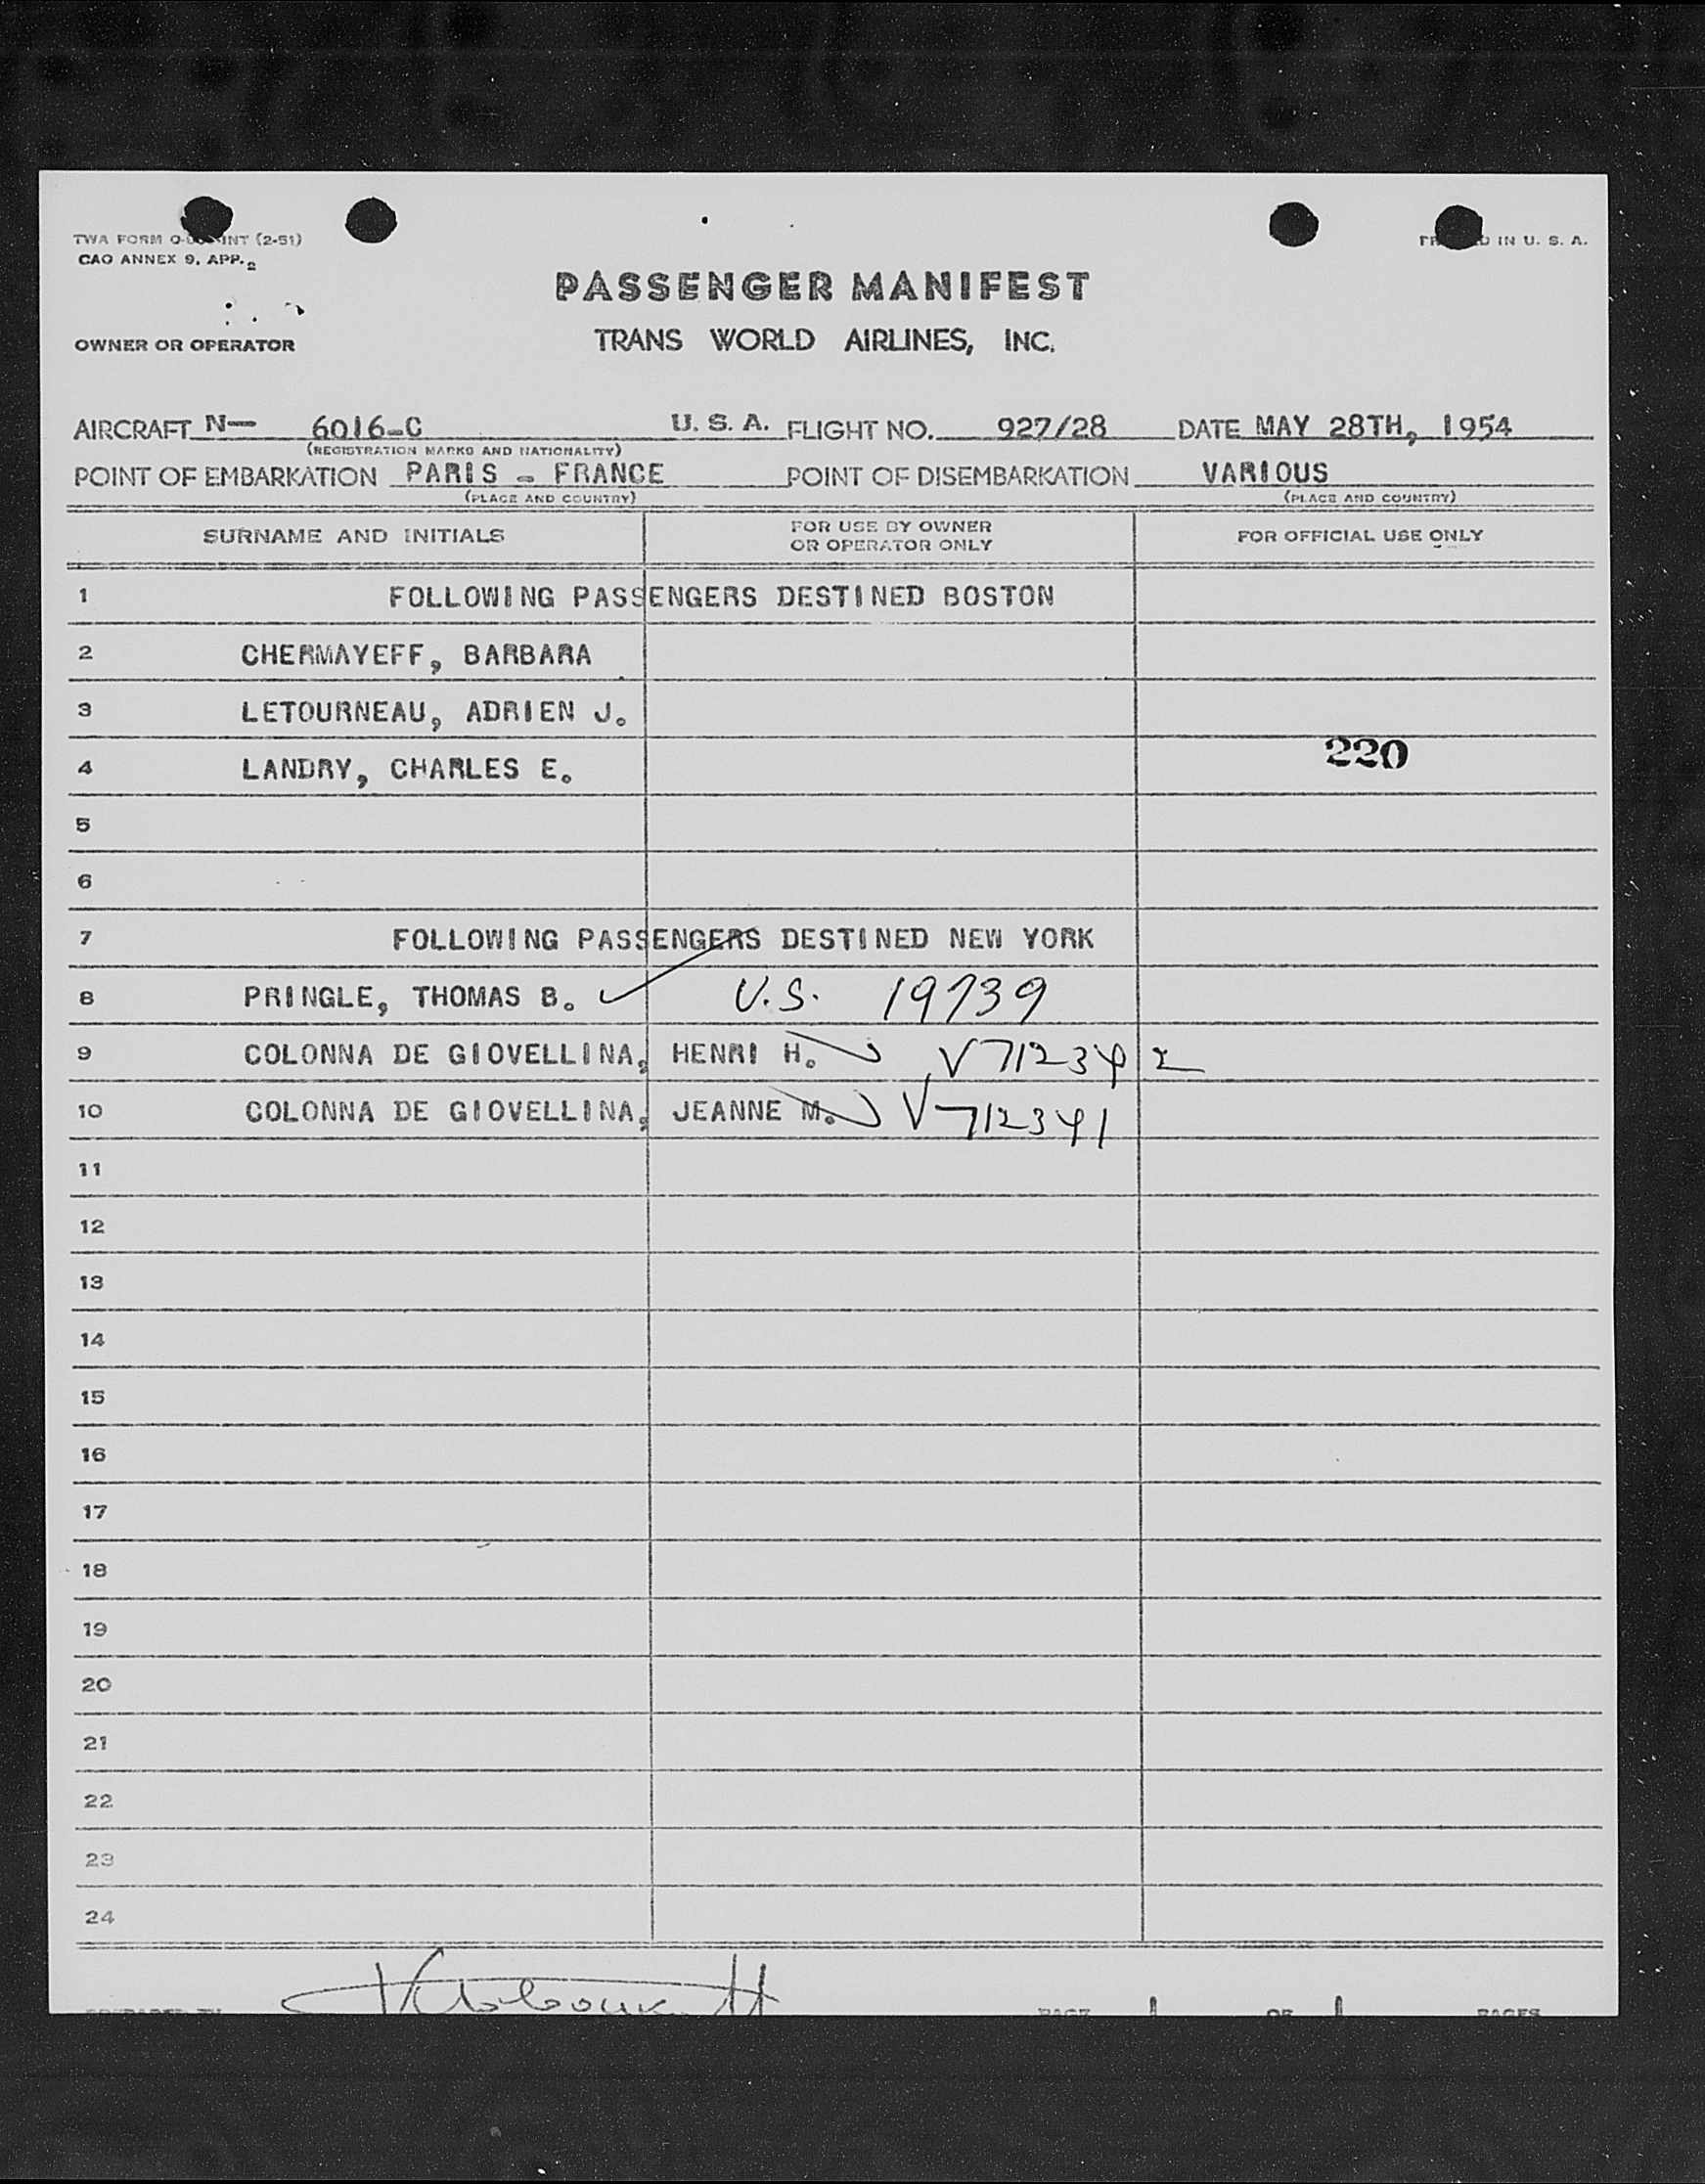 TWA FORM O- INT (2-51)
CAO ANNEX 9, APP. 2
IN U. S. A.
PASSENGER MANIFEST
OWNER OR OPERATOR TRANS WORLD AIRLINES, INC.
AIRCRAFT N— 6016-C U. S. A. FLIGHT NO. 927/28 DATE MAY 28TH, 1954
(REGISTRATION MARKS AND NATIONALITY)
POINT OF EMBARKATION PARIS - FRANCE POINT OF DISEMBARKATION VARIOUS
(PLACE AND COUNTRY) (PLACE AND COUNTRY)
SURNAME AND INITIALS FOR USE BY OWNER OR OPERATOR ONLY FOR OFFICIAL USE ONLY
1 FOLLOWING PASSENGERS DESTINED BOSTON
2 CHERMAYEFF, BARBARA
3 LETOURNEAU, ADRIEN J.
4 LANDRY, CHARLES E. 220
5
6
7 FOLLOWING PASSENGERS DESTINED NEW YORK
8 PRINGLE, THOMAS B. U.S. 19739
9 COLONNA DE GIOVELLINA, HENRI H. V712342
10 COLONNA DE GIOVELLINA, JEANNE M. V712341
11
12
13
14
15
16
17
18
19
20
21
22
23
24
PREPARED BY PAGE 1 OF 1 PAGES